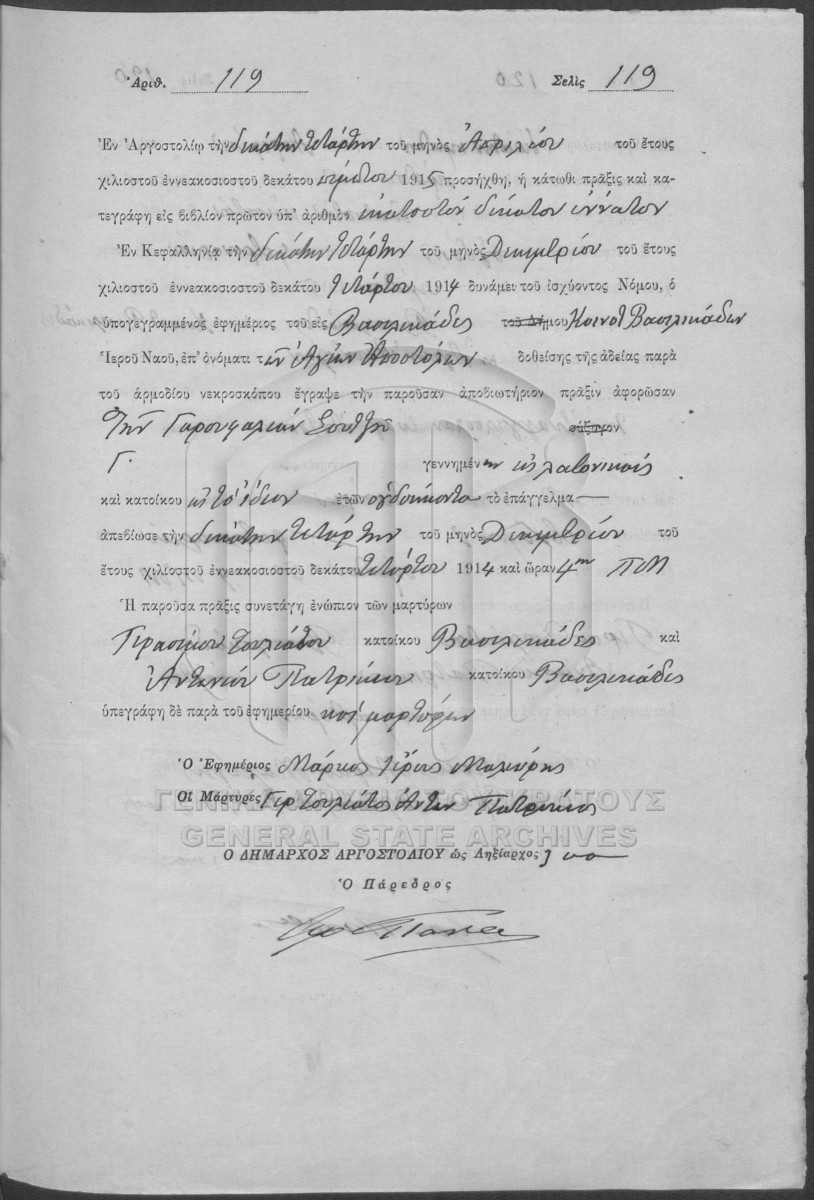 Ἀριθ. 119 Σελὶς 119
Ἐν Ἀργοστολίῳ τὴν δεκάτην τετάρτην τοῦ μηνὸς Ἀπριλίου τοῦ ἔτους
χιλιοστοῦ ἐννεακοσιοστοῦ δεκάτου πέμπτου 1915 προσήχθη, ἡ κάτωθι πρᾶξις καὶ κα-
τεγράφη εἰς βιβλίον πρῶτον ὑπ' ἀριθμὸν ἑκατοστὸν δέκατον ἔννατον
Ἐν Κεφαλληνίᾳ τὴν δεκάτην τετάρτην τοῦ μηνὸς Δεκεμβρίου τοῦ ἔτους
χιλιοστοῦ ἐννεακοσιοστοῦ δεκάτου τετάρτου 1914 δυνάμει τοῦ ἰσχύοντος Νόμου, ὁ
ὑπογεγραμμένος ἐφημέριος τοῦ εἰς Βασιλικάδες τοῦ Δήμου Κοινοτ Βασιλικάδων
Ἱεροῦ Ναοῦ, ἐπ' ὀνόματι τῶν Ἁγίων Ἀποστόλων δοθείσης τῆς ἀδείας παρὰ
τοῦ ἁρμοδίου νεκροσκόπου ἔγραψε τὴν παροῦσαν ἀποβιωτήριον πρᾶξιν ἀφορῶσαν
τὴν Γαρουφαλιὰν
γεννημένην
καὶ κατοίκου εἰς τὸ ἴδιον ἐτῶν ὀγδοήκοντα τὸ ἐπάγγελμα —
ἀπεβίωσε τὴν δεκάτην τετάρτην τοῦ μηνὸς Δεκεμβρίου τοῦ
ἔτους χιλιοστοῦ ἐννεακοσιοστοῦ δεκάτου τετάρτου 1914 καὶ ὥραν 4ην ΠΜ
Ἡ παροῦσα πρᾶξις συνετάγη ἐνώπιον τῶν μαρτύρων
Γερασίμου Τουλιάτου κατοίκου Βασιλικάδες καὶ
Ἀντωνίου Πατρικίου κατοίκου Βασιλικάδες
ὑπεγράφη δὲ παρὰ τοῦ ἐφημερίου καὶ μαρτύρων
Ὁ Ἐφημέριος Μάρκος Ἱερεὺς
Οἱ Μάρτυρες Γερ Τουλιάτος Ἀντων Πατρίκιος
ΓΕΝΙΚΑ ΑΡΧΕΙΑ ΤΟΥ ΚΡΑΤΟΥΣ
GENERAL STATE ARCHIVES
Ο ΔΗΜΑΡΧΟΣ ΑΡΓΟΣΤΟΛΙΟΥ ὡς Ληξίαρχος
Ὁ Πάρεδρος